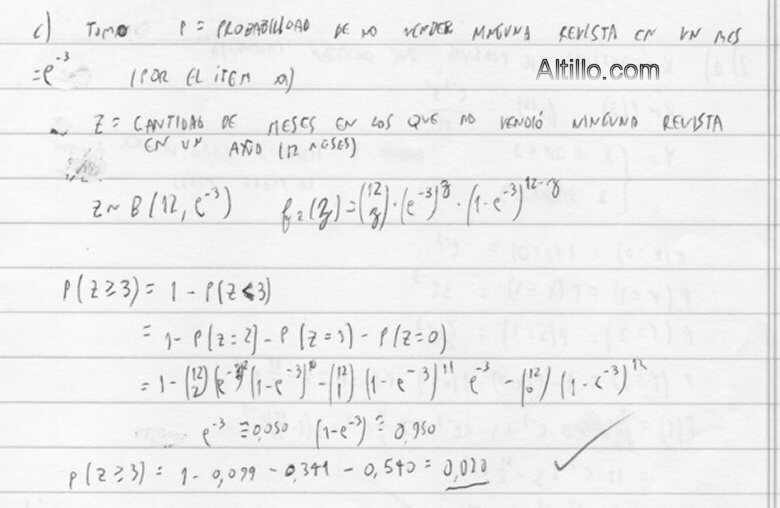 c) TOMO P = PROBABILIDAD DE NO VENDER NINGUNA REVISTA EN UN MES
= e^-3 (POR EL ITEM a)
Altillo.com
Z = CANTIDAD DE MESES EN LOS QUE NO VENDIÓ NINGUNA REVISTA
EN UN AÑO (12 MESES)
Z ~ B(12, e^-3) f_Z(z) = (12 z) · (e^-3)^z · (1-e^-3)^12-z
P(Z ≥ 3) = 1 - P(Z < 3)
= 1 - P(Z=2) - P(Z=1) - P(Z=0)
= 1 - (12 2) (e^-3)^2 (1-e^-3)^10 - (12 1) (1-e^-3)^11 e^-3 - (12 0) (1-e^-3)^12
e^-3 ≅ 0,050 (1-e^-3) ≅ 0,950
P(Z ≥ 3) = 1 - 0,099 - 0,341 - 0,540 = 0,020